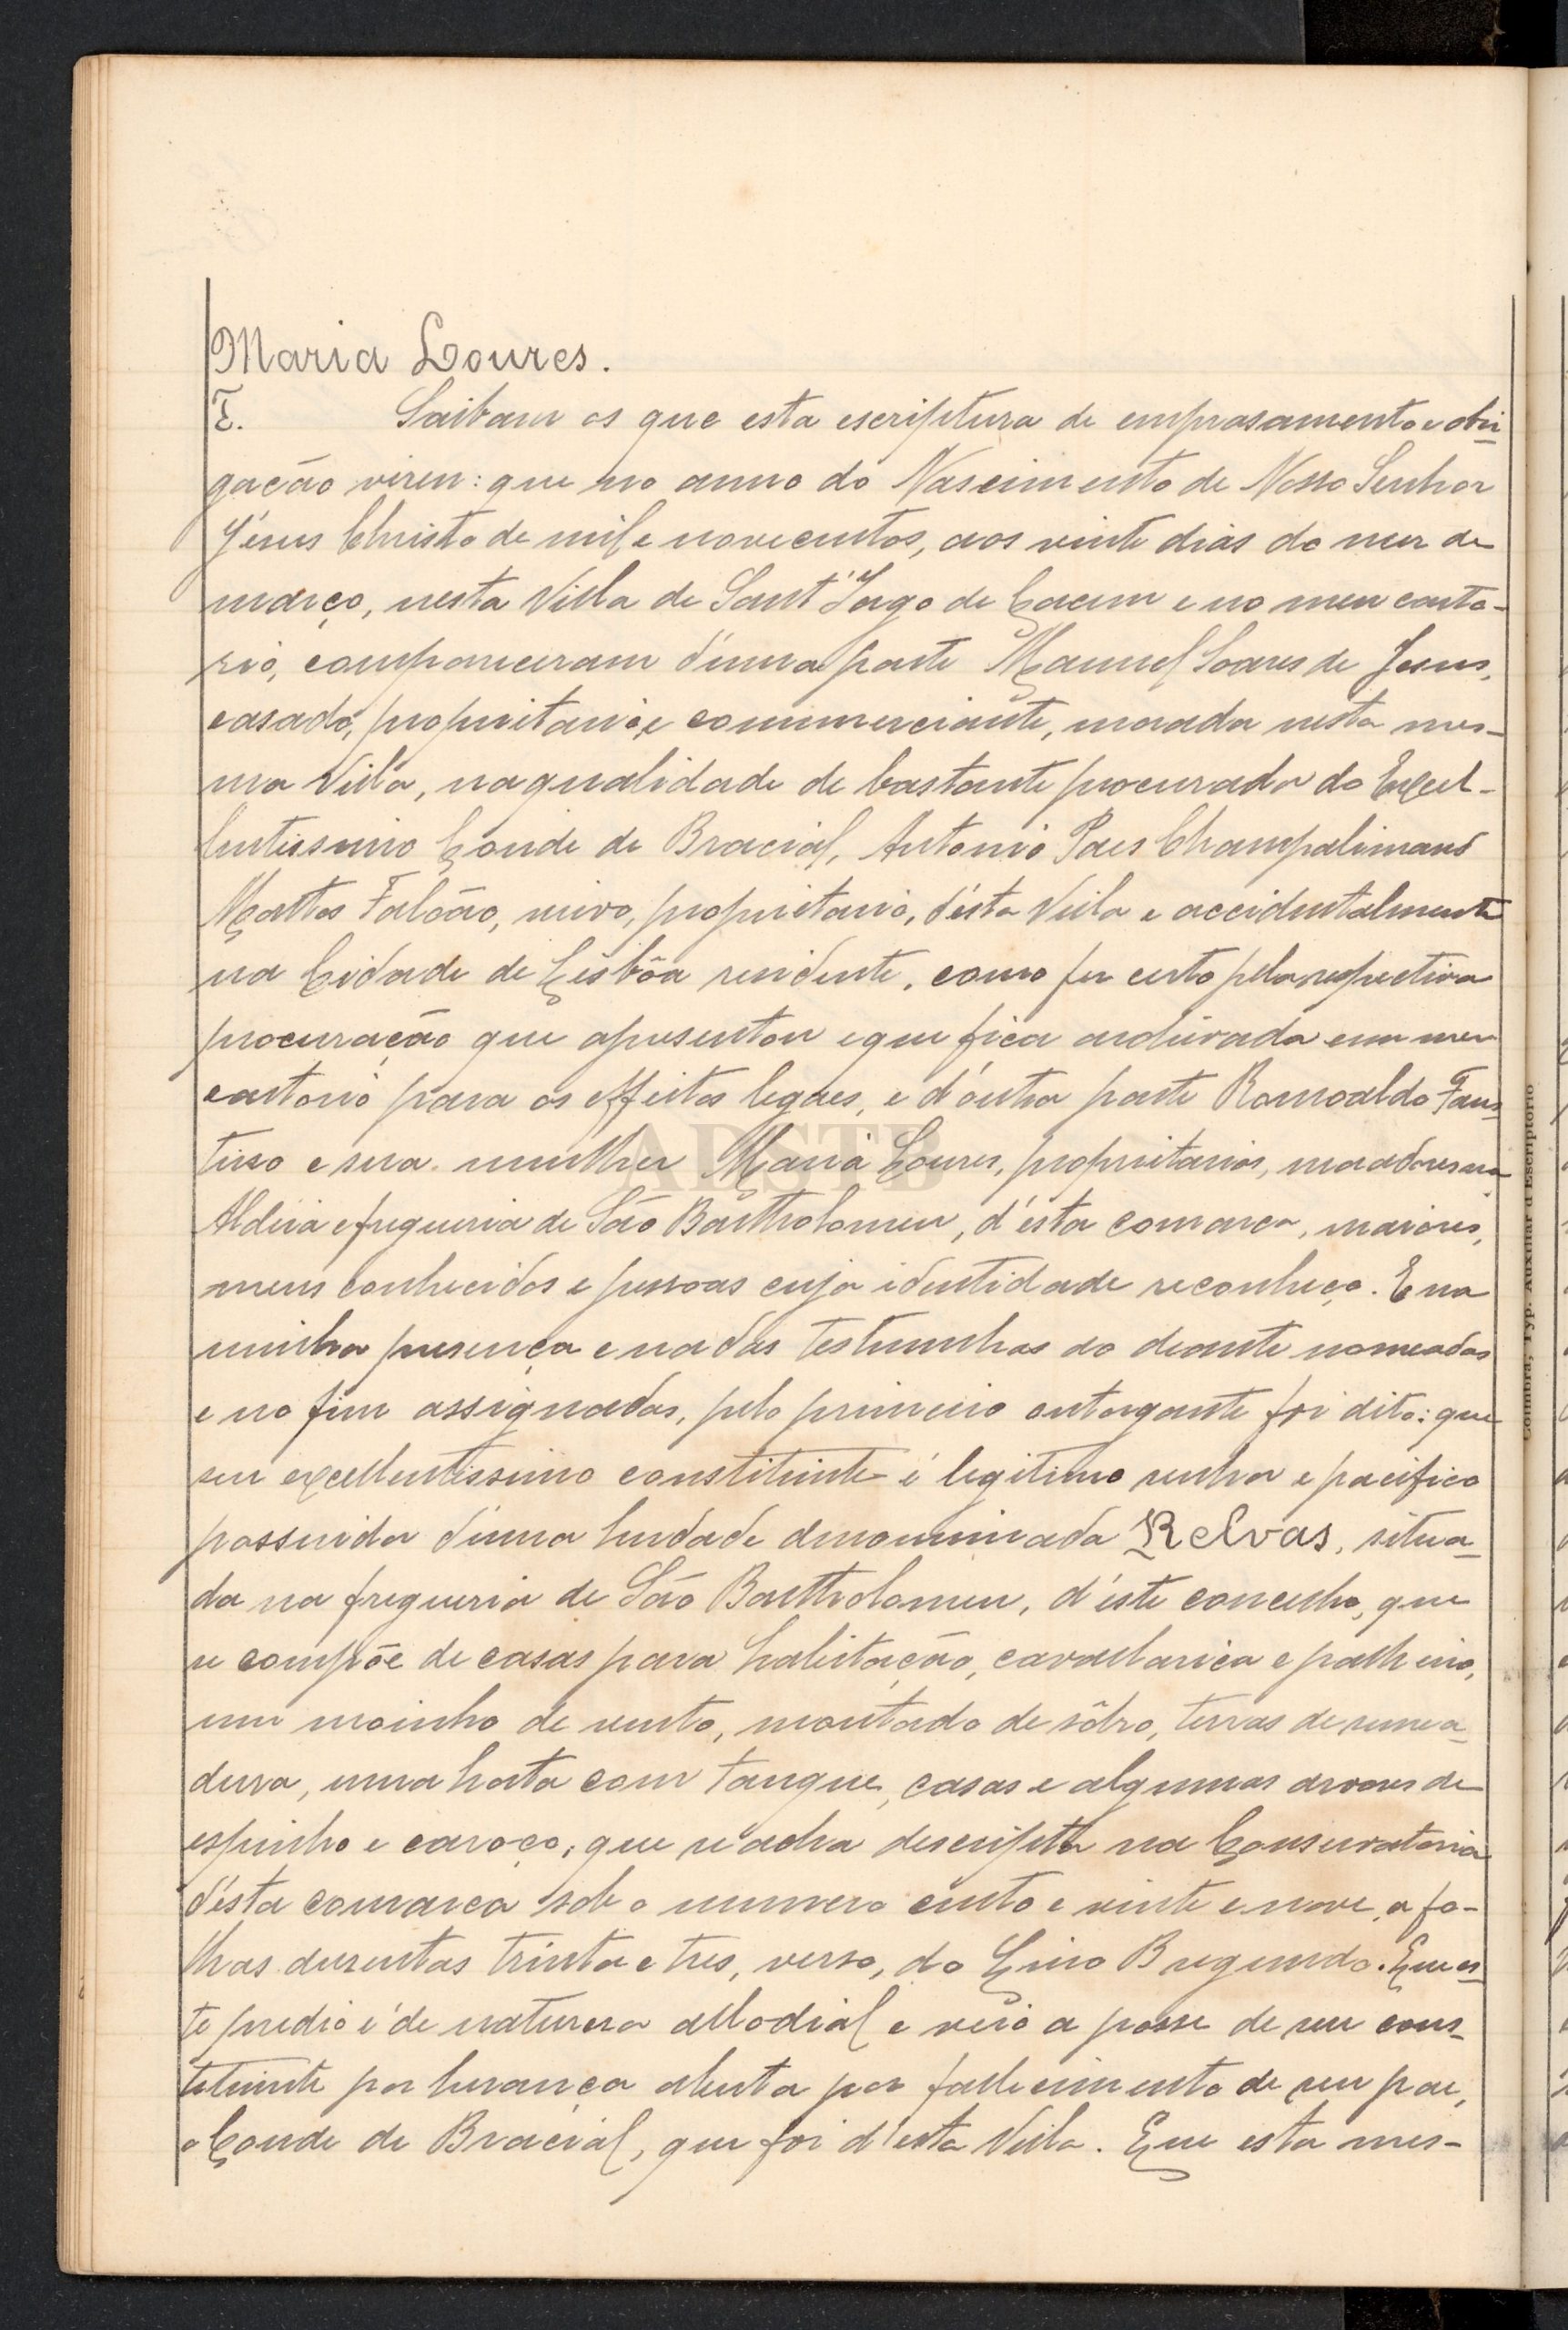 Maria Loures.
E. Saibam os que esta escriptura de emprasamento e obri-
gação virem: que no anno do Nascimento de Nosso Senhor
Jesus Christo de mil e novecentos, aos vinte dias do mez de
março, nesta Villa de Sant'Iago de Cacem e no meu carto-
rio, compareceram d'uma parte Manuel Soares de Jesus,
casado, proprietario e commerciante, morador nesta mes-
ma Villa, na qualidade de bastante procurador do Excel-
lentissimo Conde de Bracial, Antonio Paes Champalimaud
Mattos Falcão, viuvo, proprietario, d'esta Villa e accidentalmente
na Cidade de Lisbôa residente, como fez certo pela respectiva
procuração que apresentou e que fica archivada em meu
cartorio para os effeitos legaes, e d'outra parte Romoaldo Faus-
tino e sua mulher Maria Loures, proprietarios, moradores na
Aldeia e freguezia de São Bartholomeu, d'esta comarca, maiores,
meus conhecidos e pessoas cuja identidade reconheço. E na
minha presença e na das testemunhas ao deante nomeadas
e no fim assignadas, pelo primeiro outorgante foi dito: que
seu excellentissimo constituinte é legitimo senhor e pacifico
possuidor d'uma herdade denominada Relvas, situa-
da na freguezia de São Bartholomeu, d'este concelho, que
se compõe de casas para habitação, cavallariça e palheiro,
um moinho de vento, montado de sôbro, terras de semea-
dura, uma horta com tanque, casas e algumas arvores de
espinho e caroço; que se acha descripta na Conservatoria
d'esta comarca sob o numero cento e vinte e nove, a fo-
lhas duzentas trinta e tres, verso, do Livro B segundo. Que es-
te predio é de natureza allodial e veio a posse de seu cons-
tituinte por herança aberta por fallecimento de seu pae,
o Conde de Bracial, que foi d'esta Villa. Que esta mes-
ADSTB
Coimbra, Typ. Auxiliar d'Escriptorio